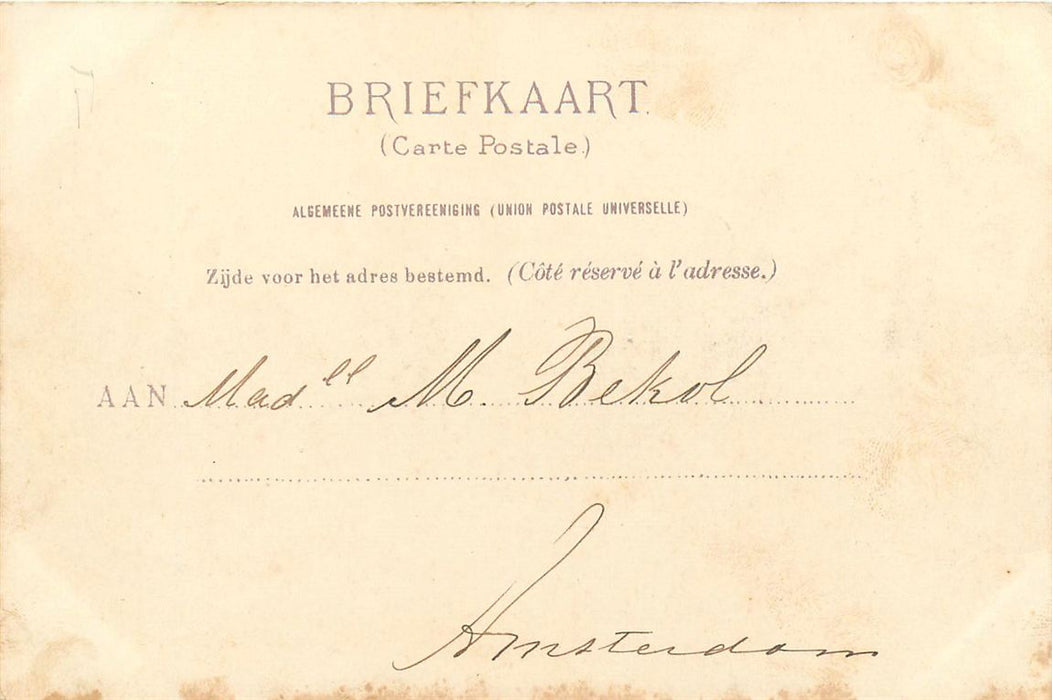 BRIEFKAART.
(Carte Postale.)
ALGEMEENE POSTVEREENIGING (UNION POSTALE UNIVERSELLE)
Zijde voor het adres bestemd. (Côté réservé à l'adresse.)
AAN Madll M. Bekol
Amsterdam